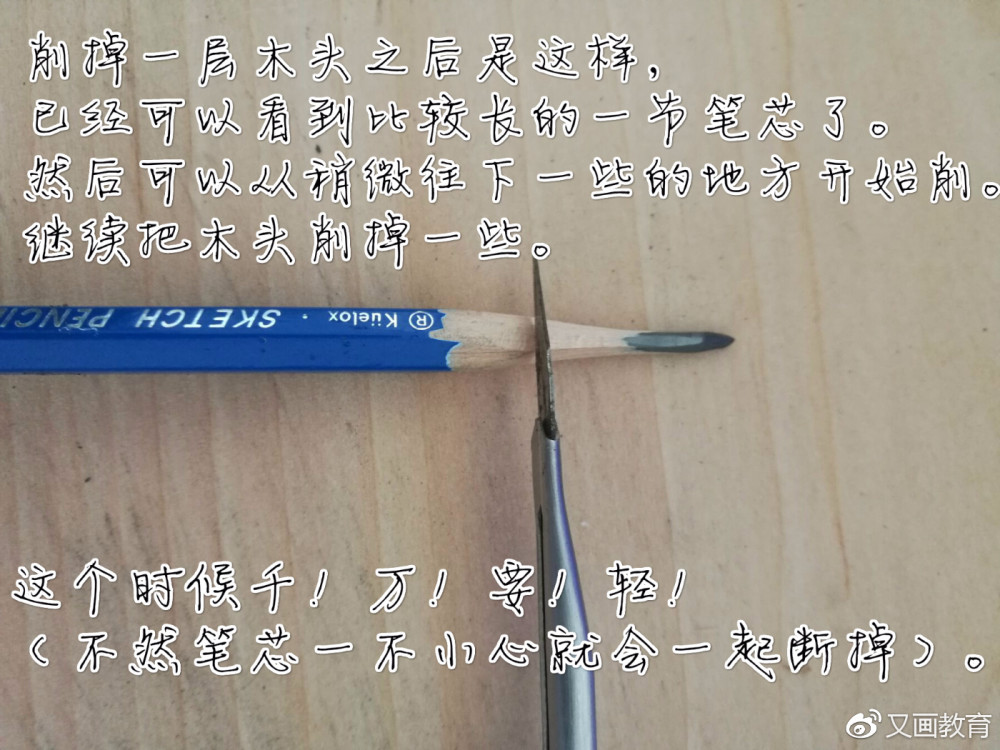 削掉一层木头之后是这样，
已经可以看到比较长的一节笔芯了。
然后可以从稍微往下一些的地方开始削。
继续把木头削掉一些。
SKETCH PENCI
· Küelox ®
这个时候千！万！要！轻！
（不然笔芯一不小心就会一起断掉）。
又画教育